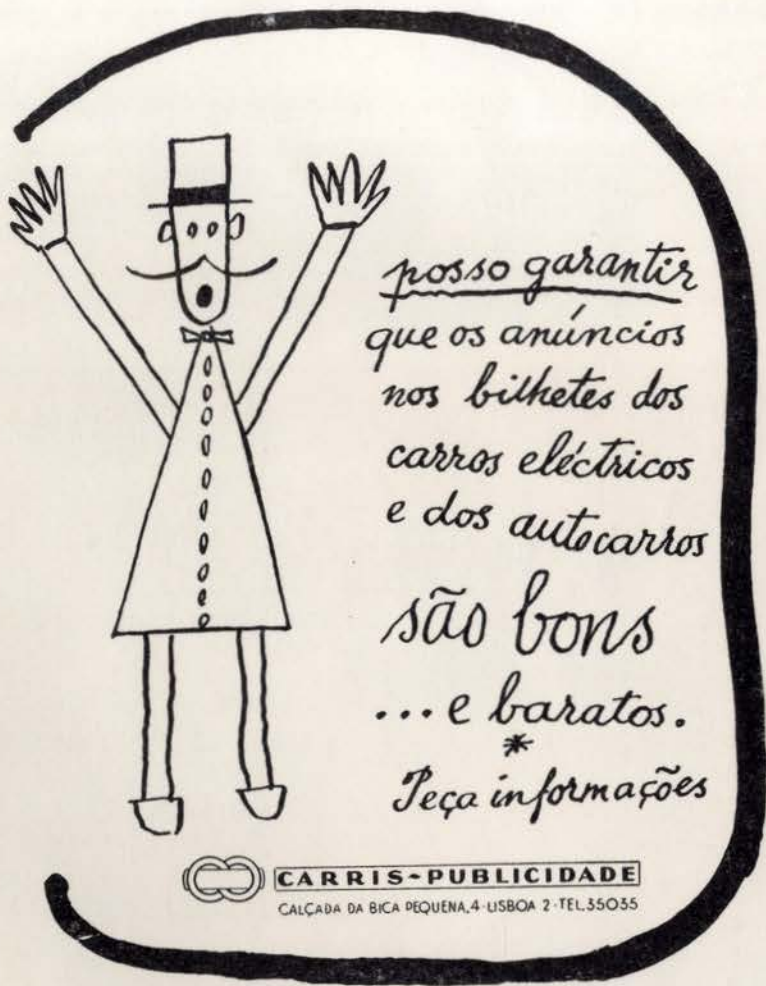 posso garantir
que os anúncios
nos bilhetes dos
carros eléctricos
e dos autocarros
são bons
... e baratos.
*
Peça informações
CARRIS-PUBLICIDADE
CALÇADA DA BICA PEQUENA, 4-LISBOA 2-TEL. 35035